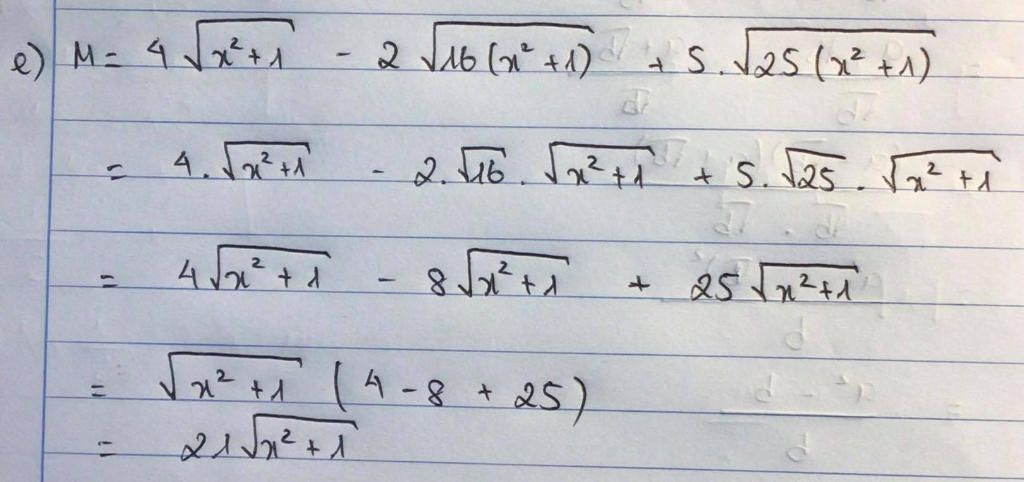 e) M = 4√(x²+1) - 2√(16(x²+1)) + 5.√(25(x²+1))
= 4.√(x²+1) - 2.√16.√(x²+1) + 5.√25.√(x²+1)
= 4√(x²+1) - 8√(x²+1) + 25√(x²+1)
= √(x²+1) (4 - 8 + 25)
= 21√(x²+1)